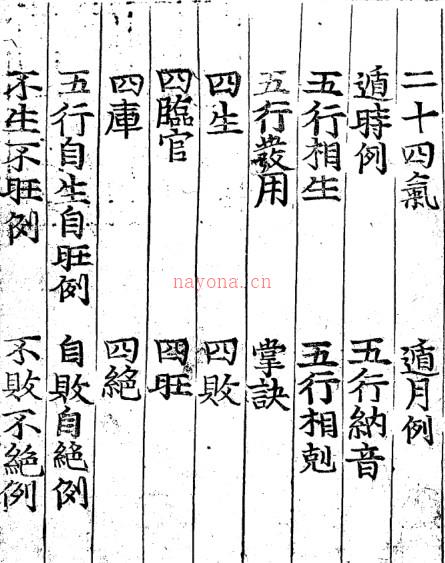 二十四氣 遁月例
遁時例 五行納音
五行相生 五行相剋
五行發用 掌訣
四生 四敗
四臨官 四旺
四庫 四絕
五行自生自旺例 自敗自絕例
不生不旺例 不敗不絕例
nayona.cn